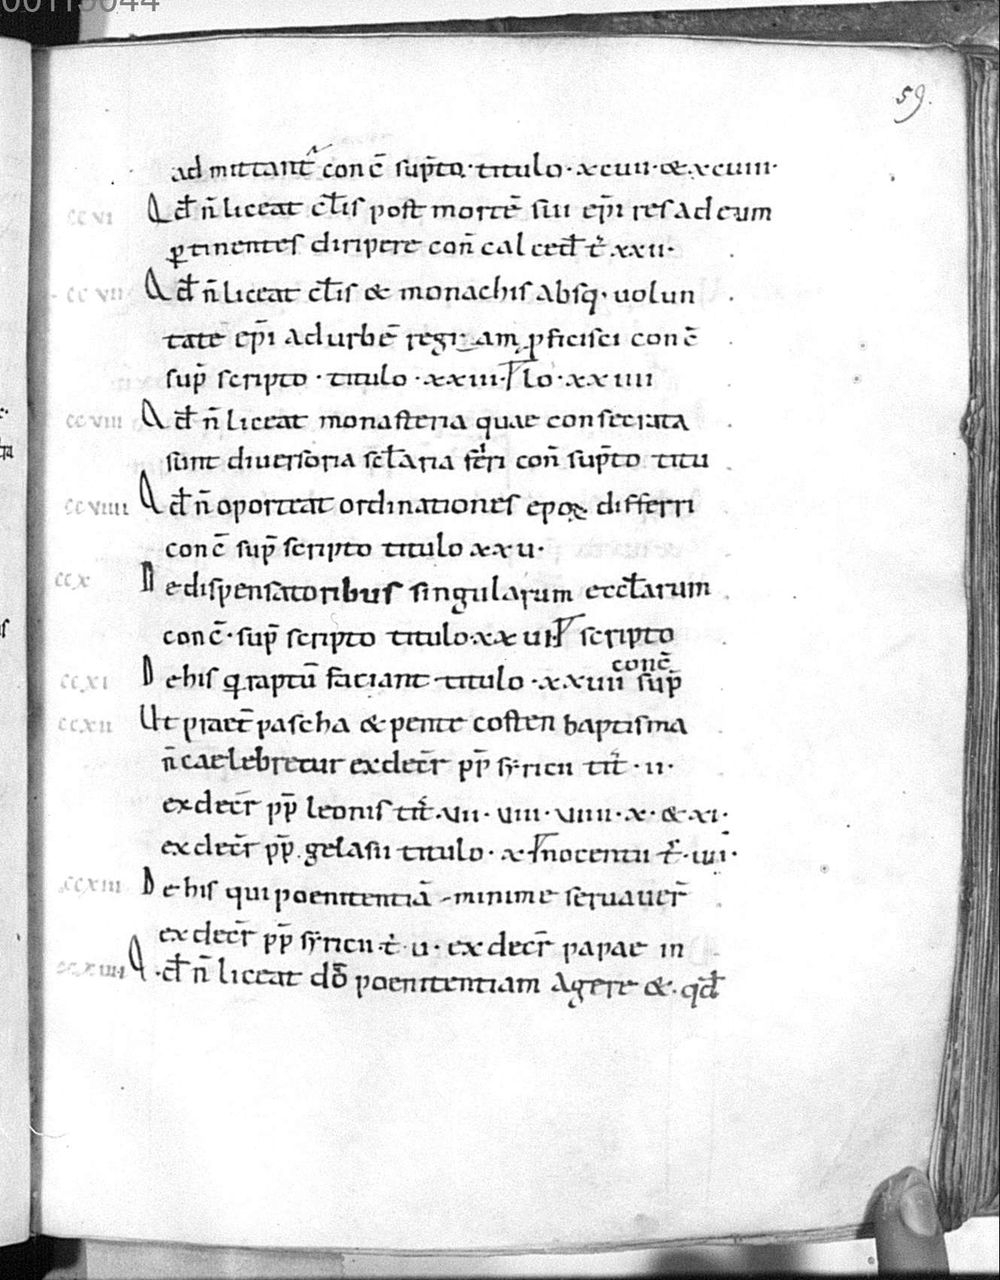 00119044
59.
admittant̄ conc̄ sup̄to· titulo· xcuii· & xcuiii·
ccvi Qd̄ n̄ liceat cl̄is post mortē sui ep̄i res ad eum
ꝑtinentes diripere con̄ calced̄ t̄ xxii·
ccvii Qd̄ n̄ liceat cl̄is & monachis absq· uolun
tate ep̄i ad urbē regiam ꝓficisci conc̄
sup̄ scripto · titulo · xxiii· xxiiii
ccviii Qd̄ n̄ liceat monasteria quae consecrata
sunt diuersoria scl̄aria fieri con̄ sup̄to titu
ccviiii Qd̄ n̄ oporteat ordinationes epoꝝ differri
conc̄ sup̄ scripto titulo xxu·
ccx De dispensatoribus singularum eccl̄arum
conc̄· sup̄ scripto titulo· xxui scripto
conc̄
ccxi De his q raptū faciant titulo · xxuii sup̄
ccxii Ut praet̄ pascha & pente costen baptisma
n̄ caelebretur ex decr̄ pp̄ syricii tit̄ · ii·
ex decr̄ pp̄ leonis tit̄· uii· uiii· uiiii· x· & xi·
ex decr̄ pp̄ gelasii titulo· x· Innocentii t̄· iui·
ccxiii De his qui poenitentiā minime seruauer̄
ex decr̄ pp̄ syricii· t̄· u· ex decr̄ papae in
ccxiiii Qd̄ n̄ liceat dō poenitentiam agere &· qd̄